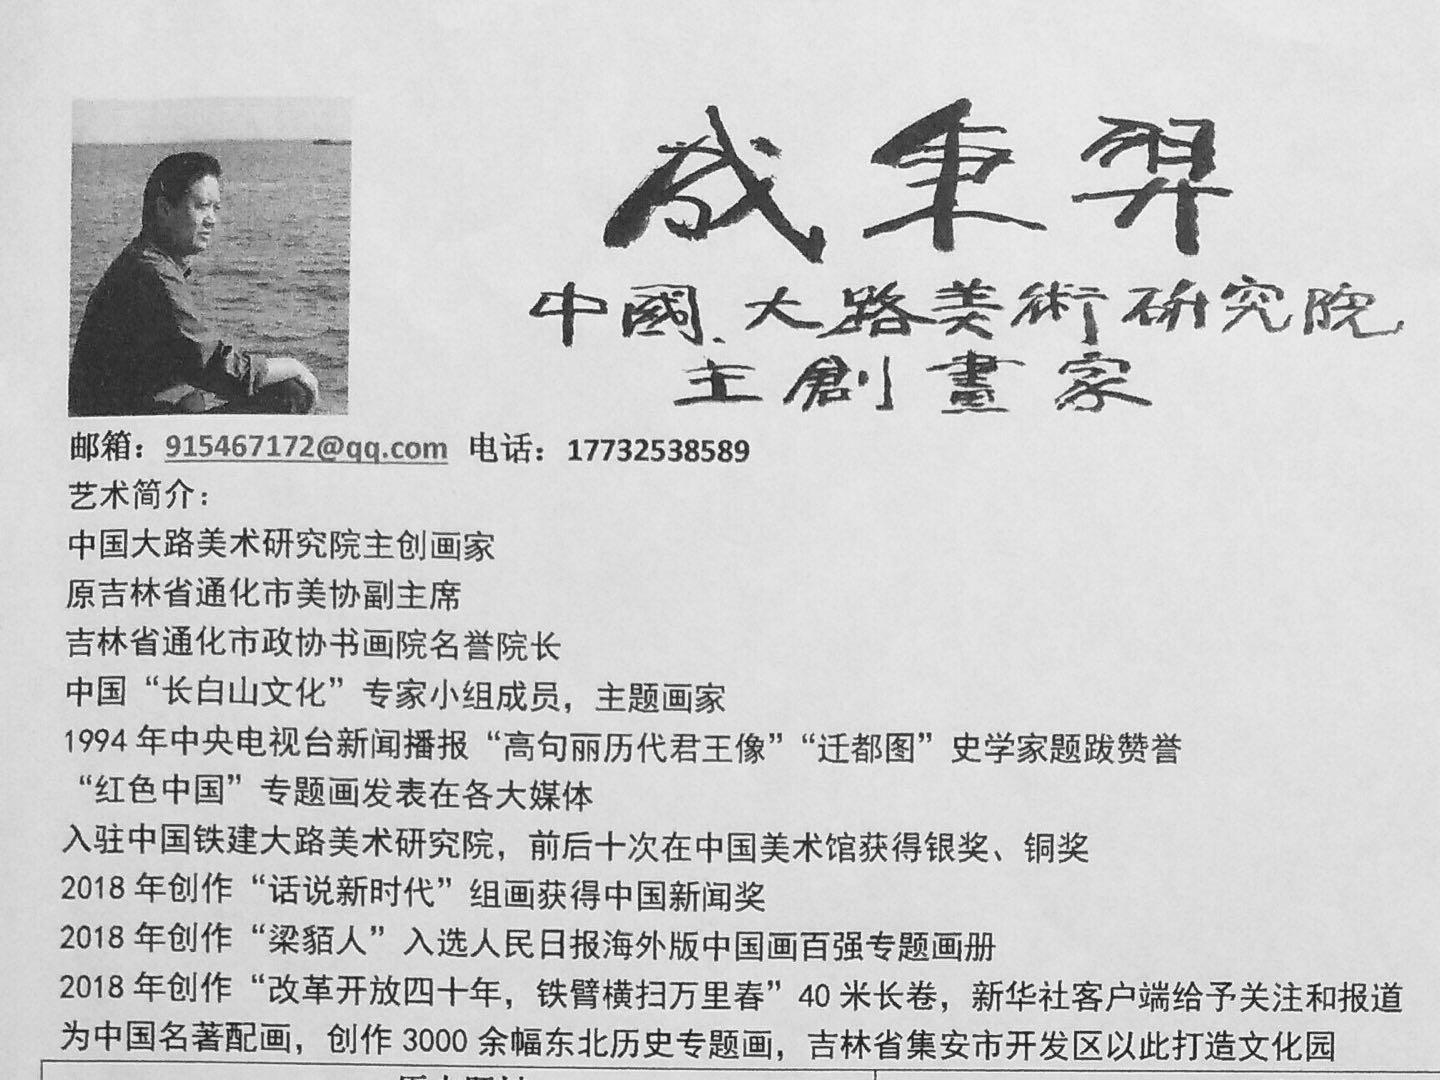 咸秉羿
中國大路美術研究院
主創畫家
邮箱：915467172@qq.com 电话：17732538589
艺术简介：
中国大路美术研究院主创画家
原吉林省通化市美协副主席
吉林省通化市政协书画院名誉院长
中国“长白山文化”专家小组成员，主题画家
1994年中央电视台新闻播报“高句丽历代君王像”“迁都图”史学家题跋赞誉
“红色中国”专题画发表在各大媒体
入驻中国铁建大路美术研究院，前后十次在中国美术馆获得银奖、铜奖
2018年创作“话说新时代”组画获得中国新闻奖
2018年创作“梁貊人”入选人民日报海外版中国画百强专题画册
2018年创作“改革开放四十年，铁臂横扫万里春”40米长卷，新华社客户端给予关注和报道
为中国名著配画，创作3000余幅东北历史专题画，吉林省集安市开发区以此打造文化园